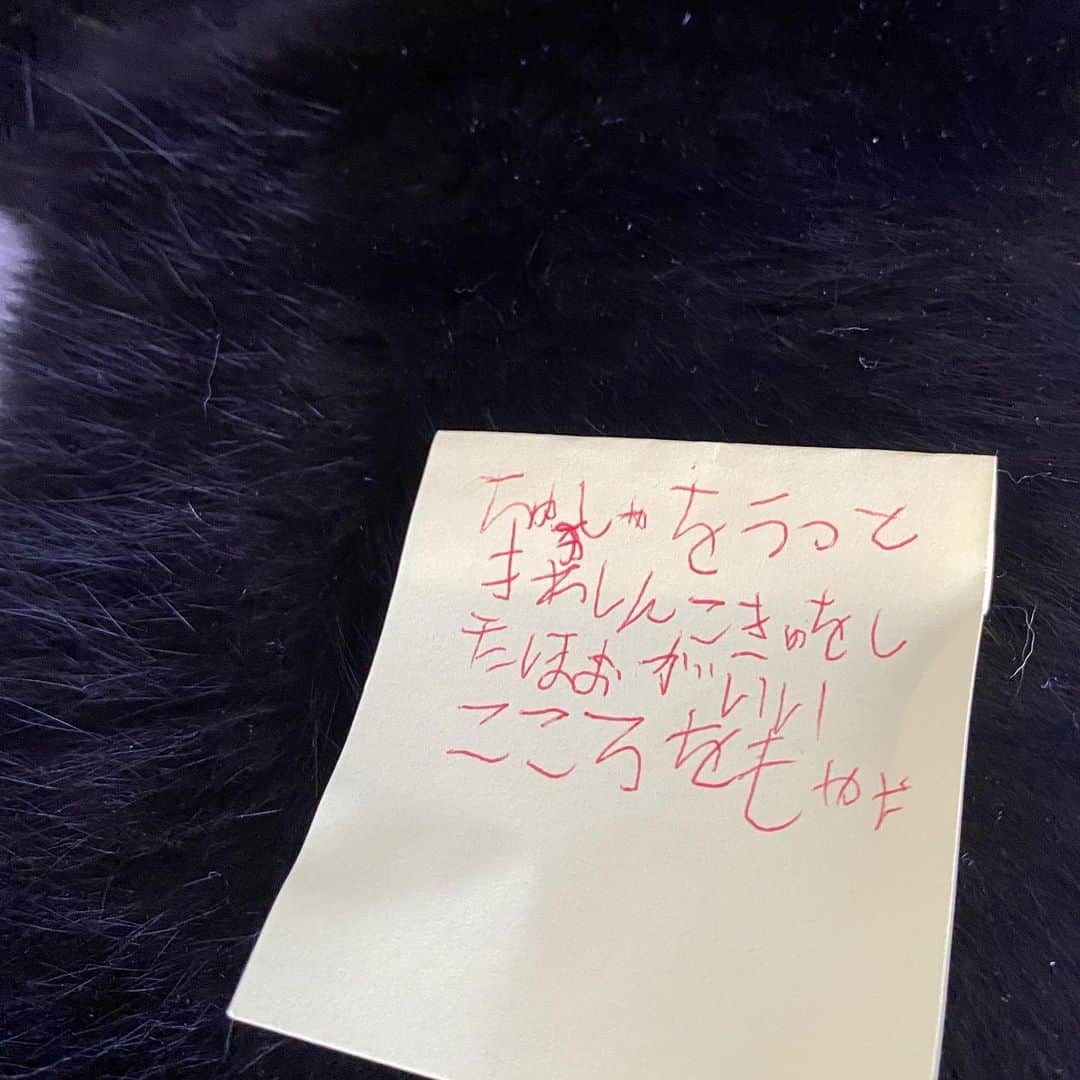 ちゅしゃをうつと
きわしんこきゅをし
たほおがいい
こころをもやだ